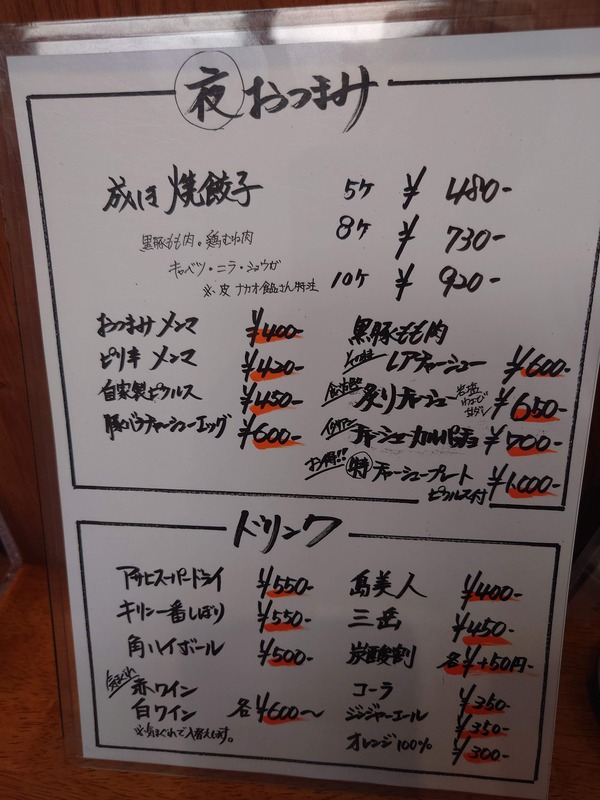 夜 おつまみ
焼餃子
5ケ ¥480-
8ケ ¥730-
10ケ ¥920-
黒豚もも肉。鶏むね肉
キャベツ・ニラ・ショウガ
※皮 ナカオ食品さん特注
おつまみメンマ ¥400-
ピリ辛メンマ ¥420-
自家製ピクルス ¥450-
豚バラチャーシューエッグ ¥600-
黒豚もも肉
レアチャーシュー ¥600-
炙りチャーシュー ¥650-
岩塩
わさび
チャーシューカルパッチョ ¥700-
お得!! 特 チャーシュープレート ¥1,000-
ピクルス付
ドリンク
アサヒスーパードライ ¥550-
キリン一番しぼり ¥550-
角ハイボール ¥500-
気まぐれ
赤ワイン
白ワイン 各¥600〜
※気まぐれで入替えします。
島美人 ¥400-
三岳 ¥450-
炭酸割 各¥+50円-
コーラ ¥350-
ジンジャーエール ¥350-
オレンジ100% ¥300-